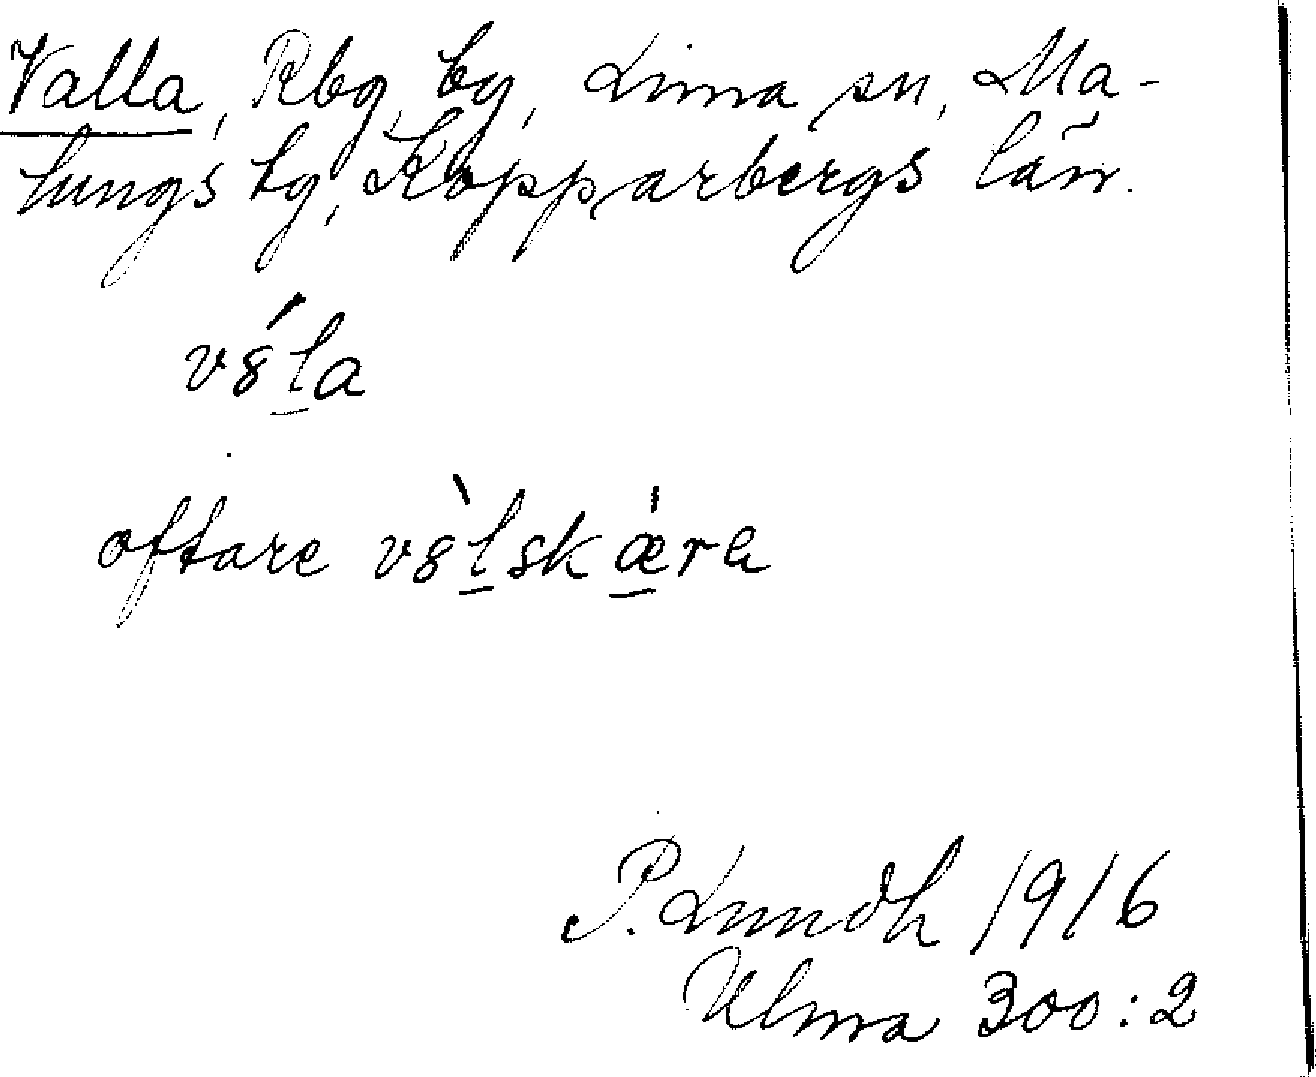 Valla, Rbg, by, Lima sn, Ma-
lungs tg, Kopparbergs län.
v8́l̲a
oftare v8̀l̲skæ̲̍ra
P. Lundh 1916
Ulma 300:2